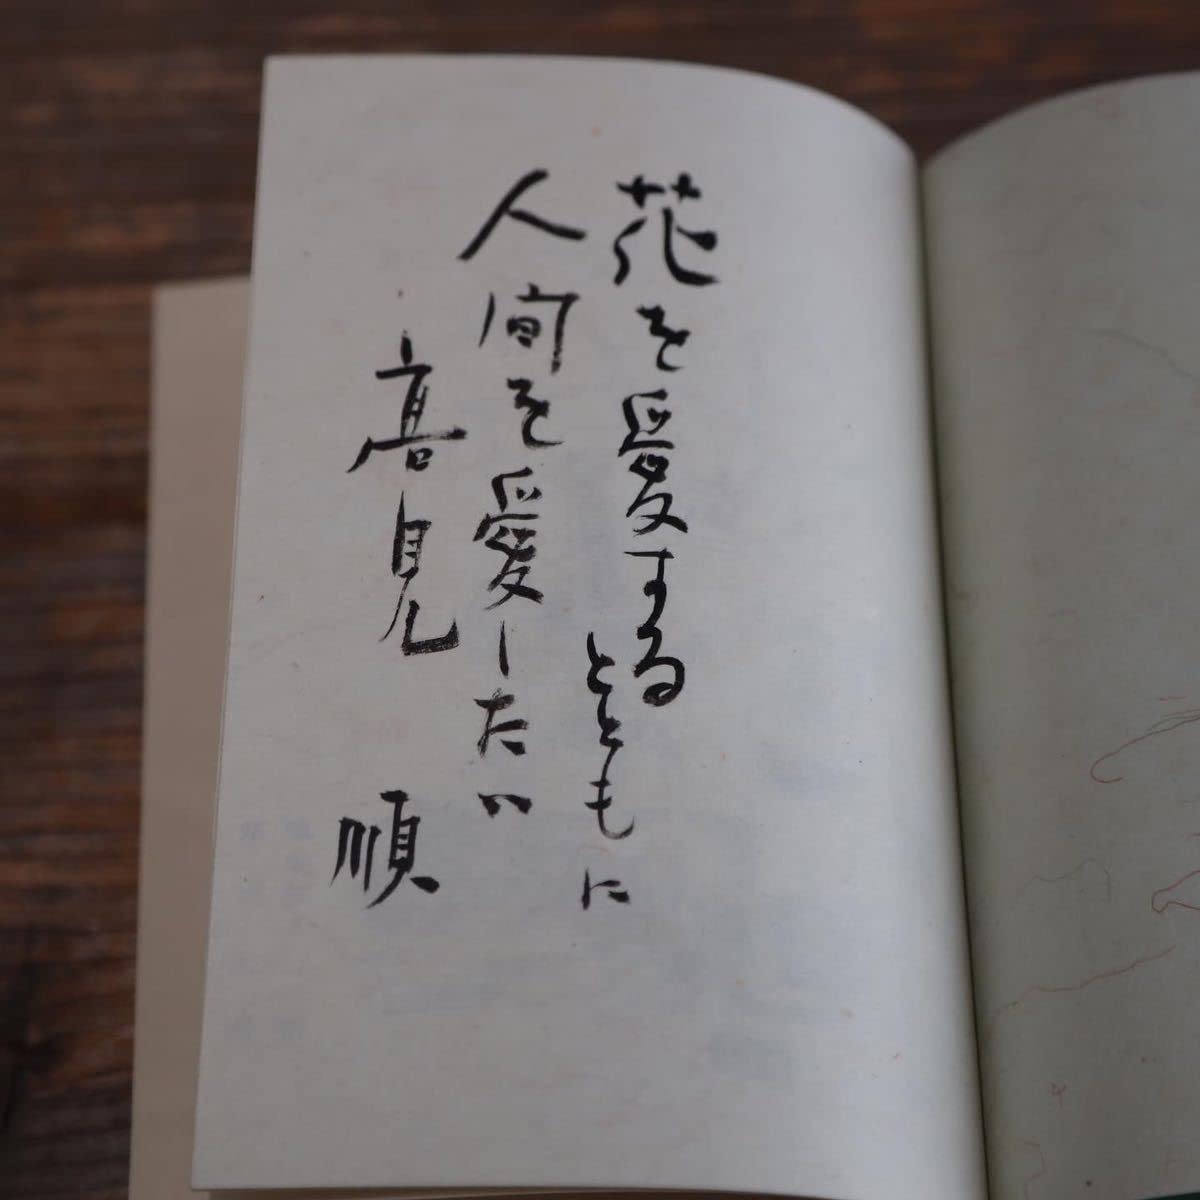 花を愛する
とともに
人間を愛したい
高見順